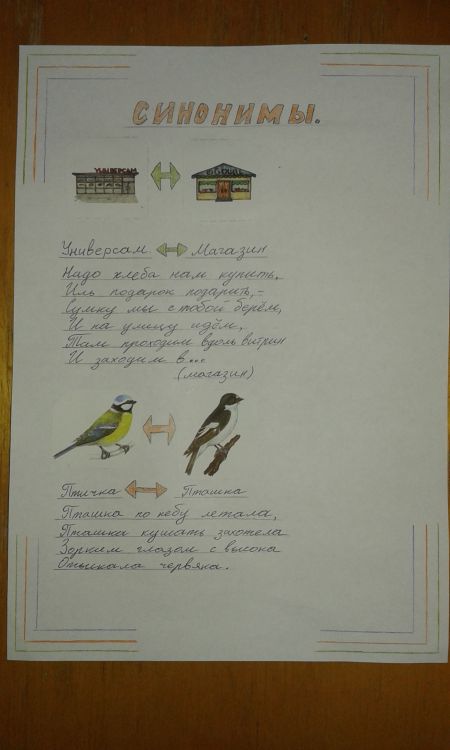 СИНОНИМЫ.
УНИВЕРСАМ
Универсам Магазин
Надо хлеба нам купить,
Иль подарок подарить, –
Сумку мы с тобой берём,
И на улицу идём,
Там проходим вдоль витрин
И заходим в...
(магазин)
Птичка Пташка
Пташка по небу летала,
Пташка кушать захотела
Зорким глазом с высока
Отыскала червяка.